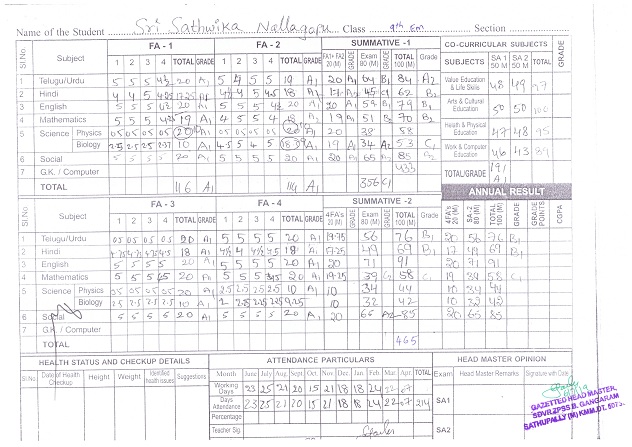 Name of the Student Sri Sathwika Nallagapu Class 9th Em Section
Sl No. Subject FA - 1 FA - 2 SUMMATIVE -1 CO-CURRICULAR SUBJECTS GRADE
1 2 3 4 TOTAL GRADE 1 2 3 4 TOTAL GRADE FA1+ FA2 20 (M) GRADE Exam 80 (M) GRADE Total 100 (M) Grade SUBJECTS SA 1 50 M SA 2 50 M TOTAL
1 Telugu/Urdu 5 5 5 4½ 20 A1 5 4 5 5 19 A1 20 A1 64 B1 84 A2 Value Education & Life Skills 48 49 97
2 Hindi 4 4 5 4.25 17.25 A1 4½ 5 5 4.5 18 A1 17 A2 45 C1 62 B2
3 English 5 5 5 4½ 20 A1 5 5 5 4½ 20 A1 20 A1 59 B1 79 B1 Arts & Cultural Education 50 50 100
4 Mathematics 5 5 5 4.25 19 A1 4 5 5 4 18 A1 19 B1 51 B2 70 B2
5 Science Physics 05 05 05 05 20 A1 05 05 05 05 20 A1 20 38 58 Health & Physical Education 47 48 95
Biology 2.5 2.5 2.5 2.37 10 A1 4.5 5 4 5 18.5 A1 19 A1 34 A2 53 C1 Work & Computer Education 46 43 89
6 Social 5 5 5 5 20 A1 5 5 5 5 20 A1 20 A1 65 A2 85 A2
7 G.K./ Computer 433 TOTAL/GRADE 191 A1
TOTAL 116 A1 114 A1 356 C1
ANNUAL RESULT
FA - 3 FA - 4 SUMMATIVE -2
Sl No. Subject 1 2 3 4 TOTAL GRADE 1 2 3 4 TOTAL GRADE 4FA's 20 (M) GRADE Exam 80 (M) GRADE Total 100 (M) Grade 4FA's 20 (M) SA -2 80 (M) TOTAL 100 (M) GRADE GRADE POINTS CGPA
1 Telugu/Urdu 05 05 05 05 20 A1 5 5 5 5 20 A1 19.75 56 76 B1 20 56 76 B1
2 Hindi 18 A1 18 A1 17.25 49 69 B1 17 18 69 B1
3 English 5 5 5 5 20 A1 5 5 5 5 20 A1 20 71 91 20 71 91
4 Mathematics 5 5 5 4.5 20 A1 5 5 5 20 A1 19.25 39 C2 58 C1 19 39 58 C1
5 Science Physics 05 05 05 05 20 A1 2.5 2.5 2.5 2.5 10 A1 10 34 44 10 34 44
Biology 2.5 2.5 2.5 2.5 10 A1 2 2.5 2.5 2.5 9.25 10 32 42 10 32 42
6 Social 5 5 5 5 20 A1 5 5 5 5 20 A1 20 65 A2 85 20 65 85
7 G.K. / Computer
TOTAL 465
HEALTH STATUS AND CHECKUP DETAILS ATTENDANCE PARTICULARS HEAD MASTER OPINION
Sl.No. Date of Health Checkup Height Weight Identified health issues Suggestions Month June July Aug. Sept Oct Nov. Dec Jan Feb Mar Apr. TOTAL Exam Head Master Remarks Signature with Date
Working Days 23 25 21 20 15 21 18 18 24 22 07
Days Attendance 23 25 21 20 15 21 18 18 24 22 07 214 SA1
Percentage
Teacher Sig. SA2
GAZETTED HEAD MASTER
SDVRZPSS B. GANGARAM
SATHUPALLY (M) KMM.DT.